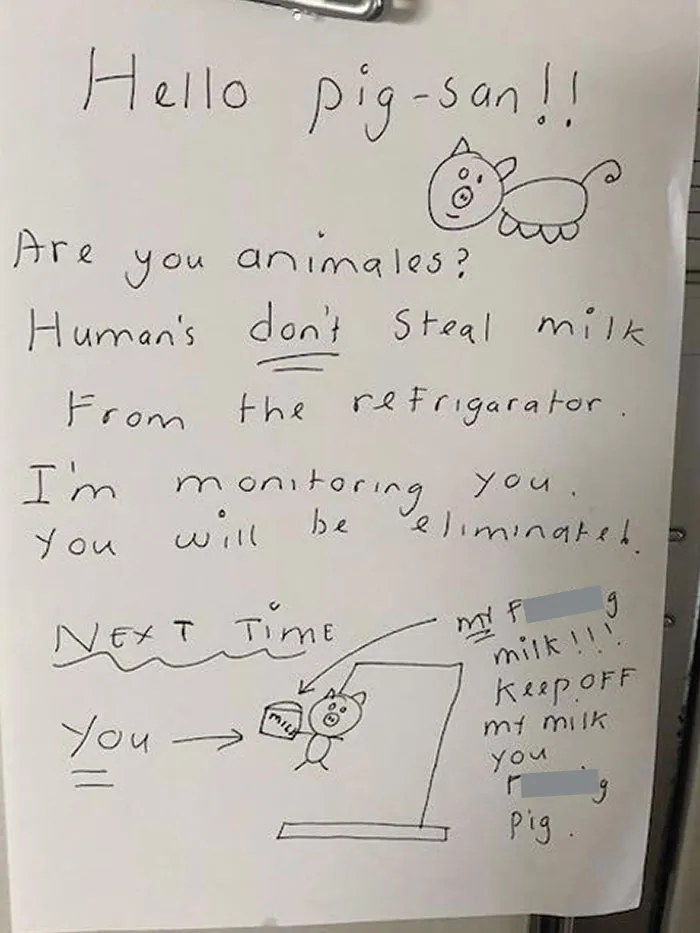 Hello pig-san!!
Are you animales?
Human's don't steal milk
From the refrigarator.
I'm monitoring you.
You will be eliminated.
NEXT TIME
You
MILK
my F g
milk!!!
Keep OFF
my milk
you
F g
pig.